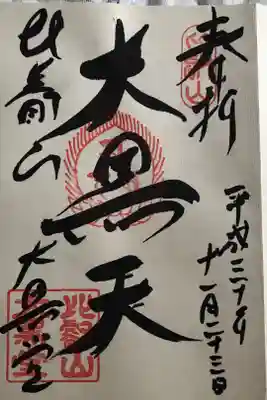 奉拝
比叡山
平成三十年
十一月二十三日
大黒天
比叡山
大黒堂
比叡山